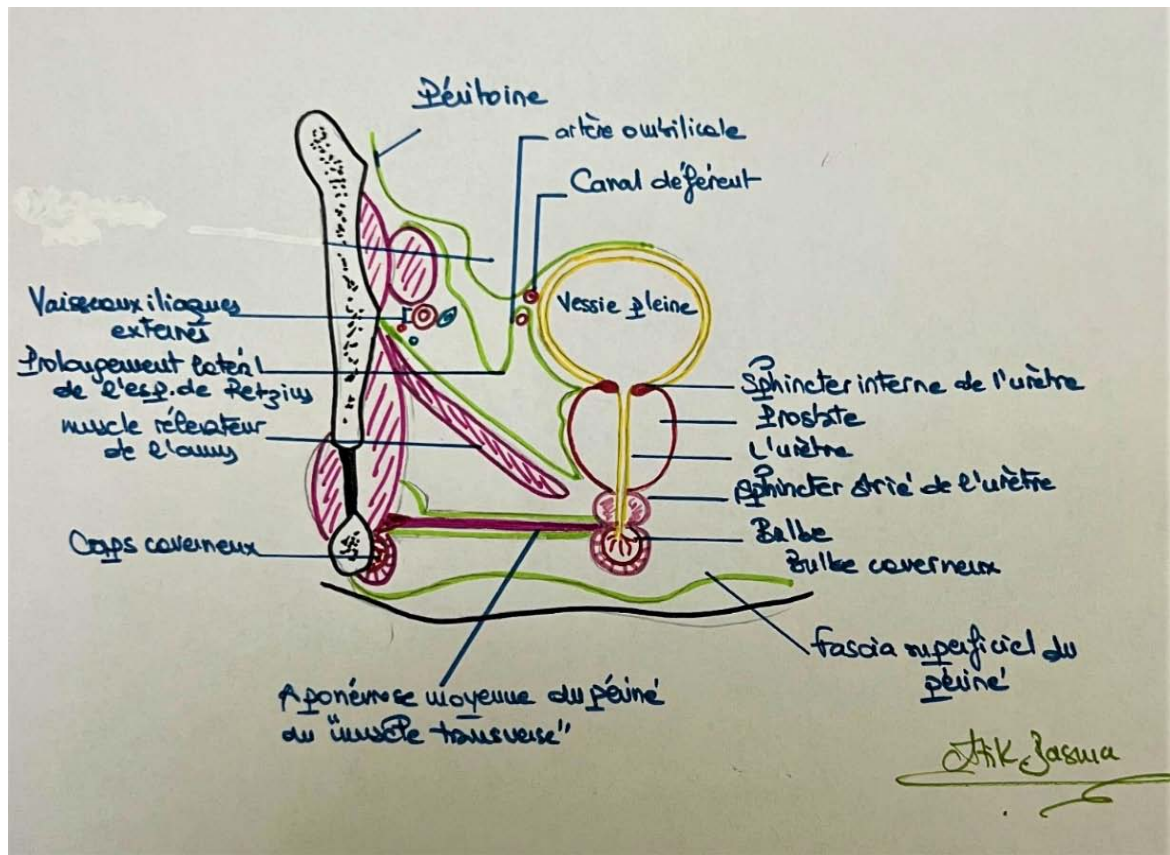 Péritoine
artère ombilicale
Canal déférent
Vaisseaux iliaques
externes
Prolongement latéral
de l'esp. de Retzius
muscle rélevateur
de l'anus
Corps caverneux
Vessie pleine
Sphincter interne de l'urètre
Prostate
L'urètre
Sphincter strié de l'urètre
Bulbe
Bulbe caverneux
Fascia superficiel du
périné
Aponévrose moyenne du périné
du "muscle transverse"
Atik Basma